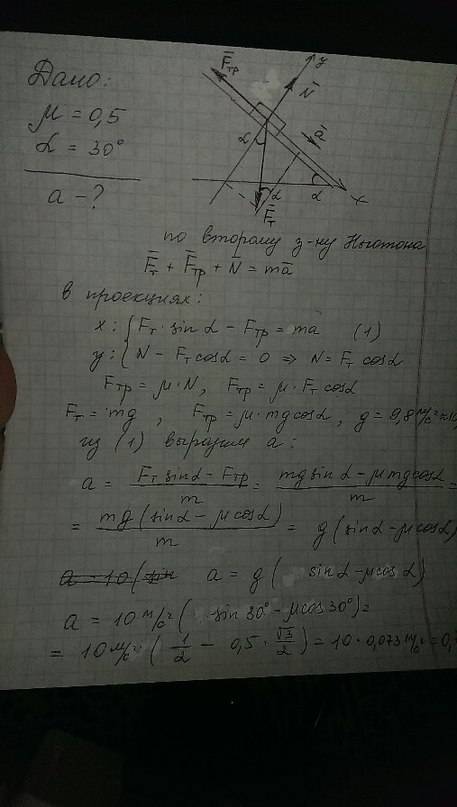 Дано:
μ = 0,5
α = 30°
a - ?
F̄тр
y
N̄
ā
α
α
α
x
F̄т
по второму з-ну Ньютона
F̄т + F̄тр + N̄ = mā
в проекциях:
x: { Fт · sin α − Fтр = ma (1)
y: { N − Fт cos α = 0 ⇒ N = Fт cos α
Fтр = μ · N, Fтр = μ · Fт cos α
Fт = mg, Fтр = μ · mg cos α, g = 9,8 м/с² ≈ 10
из (1) выразим a:
a = (Fт sin α − Fтр)/m = (mg sin α − μ mg cos α)/m =
= mg (sin α − μ cos α)/m = g (sin α − μ cos α)
a = 10 (sin a = g ( sin α − μ cos α)
a = 10 м/с² ( sin 30° − μ cos 30°) =
= 10 м/с² (1/2 − 0,5 · √3/2) = 10 · 0,073 м/с² = 0,